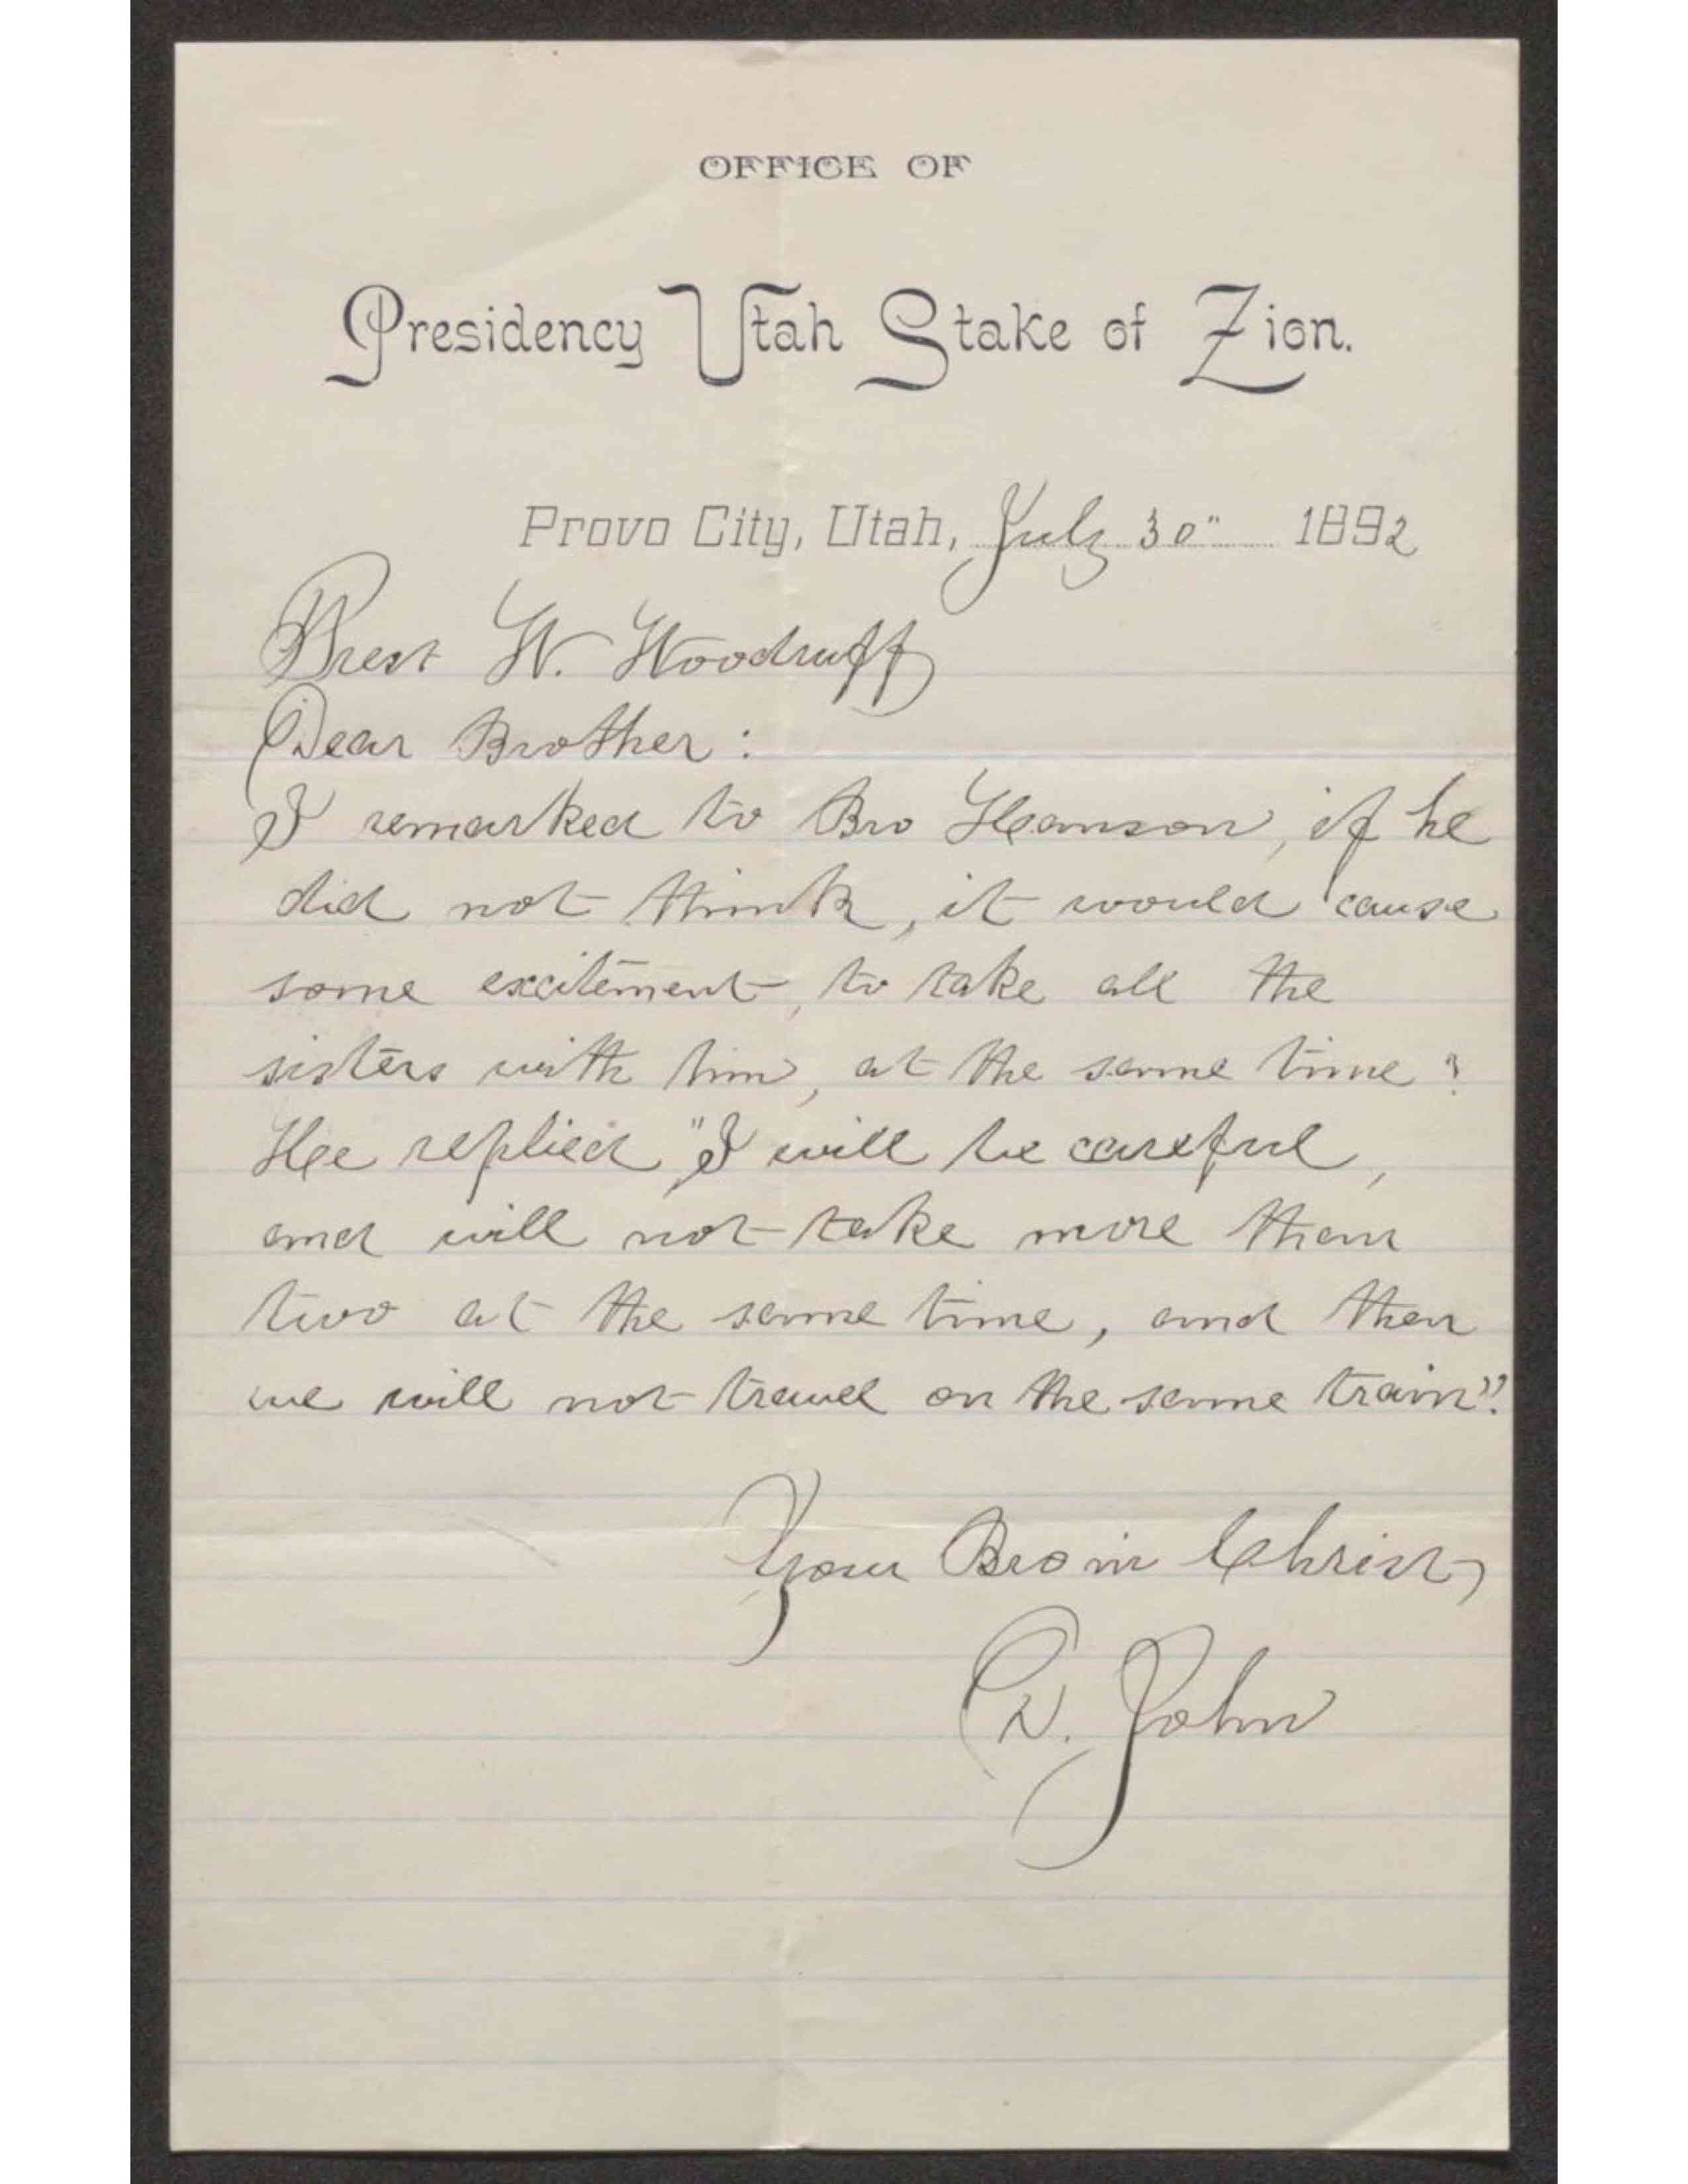 OFFICE OF
Presidency Utah Stake of Zion.
Provo City, Utah, July 30" 1892
Prest W. Woodruff
Dear Brother:
I remarked to Bro Hanson, if he
did not think, it would cause
some excitement, to take all the
sisters with him, at the same time?
He replied "I will be careful,
and will not take more than
two at the same time, and then
we will not travel on the same train".
Your Bro in Christ,
D. John